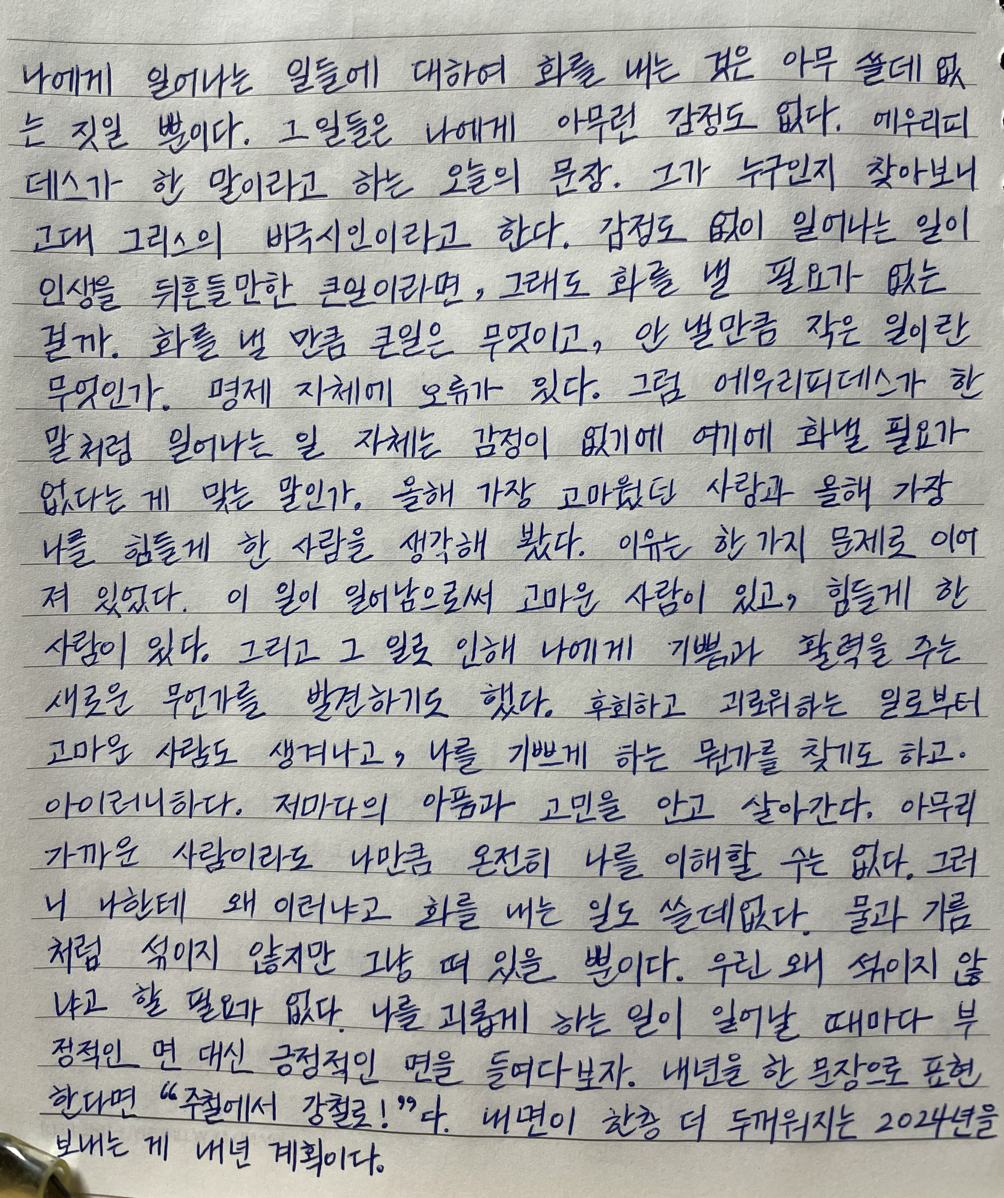 나에게 일어나는 일들에 대하여 화를 내는 것은 아무 쓸데 없
는 짓일 뿐이다. 그 일들은 나에게 아무런 감정도 없다. 에우리피
데스가 한 말이라고 하는 오늘의 문장. 그가 누구인지 찾아보니
고대 그리스의 비극시인이라고 한다. 감정도 없이 일어나는 일이
인생을 뒤흔들만한 큰일이라면, 그래도 화를 낼 필요가 없는
걸까. 화를 낼 만큼 큰일은 무엇이고, 안 낼만큼 작은 일이란
무엇인가. 명제 자체에 오류가 있다. 그럼 에우리피데스가 한
말처럼 일어나는 일 자체는 감정이 없기에 여기에 화낼 필요가
없다는 게 맞는 말인가. 올해 가장 고마웠던 사람과 올해 가장
나를 힘들게 한 사람을 생각해 봤다. 이유는 한 가지 문제로 이어
져 있었다. 이 일이 일어남으로써 고마운 사람이 있고, 힘들게 한
사람이 있다. 그리고 그 일로 인해 나에게 기쁨과 활력을 주는
새로운 무언가를 발견하기도 했다. 후회하고 괴로워하는 일로부터
고마운 사람도 생겨나고, 나를 기쁘게 하는 뭔가를 찾기도 하고.
아이러니하다. 저마다의 아픔과 고민을 안고 살아간다. 아무리
가까운 사람이라도 나만큼 온전히 나를 이해할 수는 없다. 그러
니 나한테 왜 이러냐고 화를 내는 일도 쓸데없다. 물과 기름
처럼 섞이지 않지만 그냥 떠 있을 뿐이다. 우린 왜 섞이지 않
냐고 할 필요가 없다. 나를 괴롭게 하는 일이 일어날 때마다 부
정적인 면 대신 긍정적인 면을 들여다보자. 내년을 한 문장으로 표현
한다면 “주철에서 강철로!”다. 내면이 한층 더 두꺼워지는 2024년을
보내는 게 내년 계획이다.